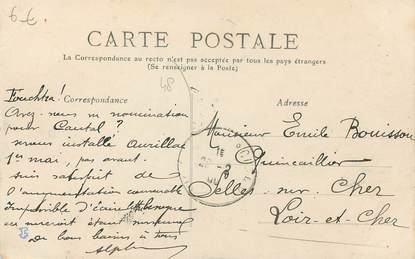 CARTE POSTALE
La Correspondance au recto n'est pas acceptée par tous les pays étrangers
(Se renseigner à la Poste)
48
Fouchtra! Correspondance
Avez-vous nomination
pour Cantal?
serons installé Aurillac
1er mai, pas avant.
suis satisfait de
l'augmentation
Impossible d'écrire
De bons baisers à tous
Alph
Adresse
Monsieur Emile Bouisson
Quincaillier
Selles-sur-Cher
Loir-et-Cher